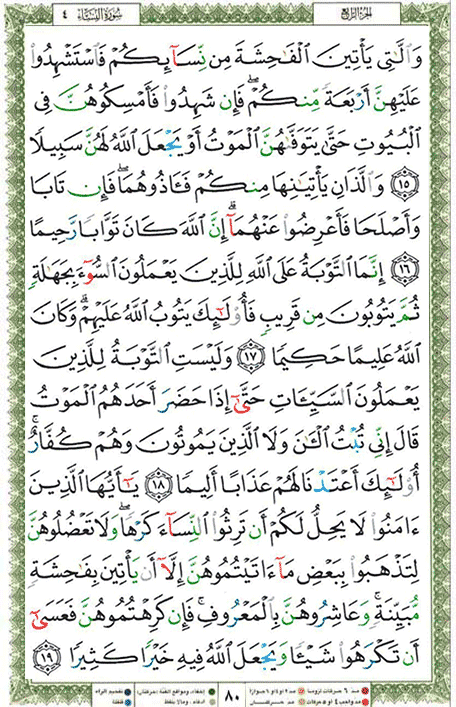 سورة النساء ٤ الجزء الرابع
وَٱلَّٰتِي يَأۡتِينَ ٱلۡفَٰحِشَةَ مِن نِّسَآئِكُمۡ فَٱسۡتَشۡهِدُواْ
عَلَيۡهِنَّ أَرۡبَعَةٗ مِّنكُمۡۖ فَإِن شَهِدُواْ فَأَمۡسِكُوهُنَّ فِي
ٱلۡبُيُوتِ حَتَّىٰ يَتَوَفَّىٰهُنَّ ٱلۡمَوۡتُ أَوۡ يَجۡعَلَ ٱللَّهُ لَهُنَّ سَبِيلٗا
١٥ وَٱلَّذَانِ يَأۡتِيَٰنِهَا مِنكُمۡ فَـَٔاذُوهُمَاۖ فَإِن تَابَا
وَأَصۡلَحَا فَأَعۡرِضُواْ عَنۡهُمَآۗ إِنَّ ٱللَّهَ كَانَ تَوَّابٗا رَّحِيمًا
١٦ إِنَّمَا ٱلتَّوۡبَةُ عَلَى ٱللَّهِ لِلَّذِينَ يَعۡمَلُونَ ٱلسُّوٓءَ بِجَهَٰلَةٖ
ثُمَّ يَتُوبُونَ مِن قَرِيبٖ فَأُوْلَٰٓئِكَ يَتُوبُ ٱللَّهُ عَلَيۡهِمۡۗ وَكَانَ
ٱللَّهُ عَلِيمًا حَكِيمٗا ١٧ وَلَيۡسَتِ ٱلتَّوۡبَةُ لِلَّذِينَ
يَعۡمَلُونَ ٱلسَّيِّـَٔاتِ حَتَّىٰٓ إِذَا حَضَرَ أَحَدَهُمُ ٱلۡمَوۡتُ
قَالَ إِنِّي تُبۡتُ ٱلۡـَٰٔنَ وَلَا ٱلَّذِينَ يَمُوتُونَ وَهُمۡ كُفَّارٌۚ
أُوْلَٰٓئِكَ أَعۡتَدۡنَا لَهُمۡ عَذَابًا أَلِيمٗا ١٨ يَٰٓأَيُّهَا ٱلَّذِينَ
ءَامَنُواْ لَا يَحِلُّ لَكُمۡ أَن تَرِثُواْ ٱلنِّسَآءَ كَرۡهٗاۖ وَلَا تَعۡضُلُوهُنَّ
لِتَذۡهَبُواْ بِبَعۡضِ مَآ ءَاتَيۡتُمُوهُنَّ إِلَّآ أَن يَأۡتِينَ بِفَٰحِشَةٖ
مُّبَيِّنَةٖۚ وَعَاشِرُوهُنَّ بِٱلۡمَعۡرُوفِۚ فَإِن كَرِهۡتُمُوهُنَّ فَعَسَىٰٓ
أَن تَكۡرَهُواْ شَيۡـٔٗا وَيَجۡعَلَ ٱللَّهُ فِيهِ خَيۡرٗا كَثِيرٗا ١٩
٨٠